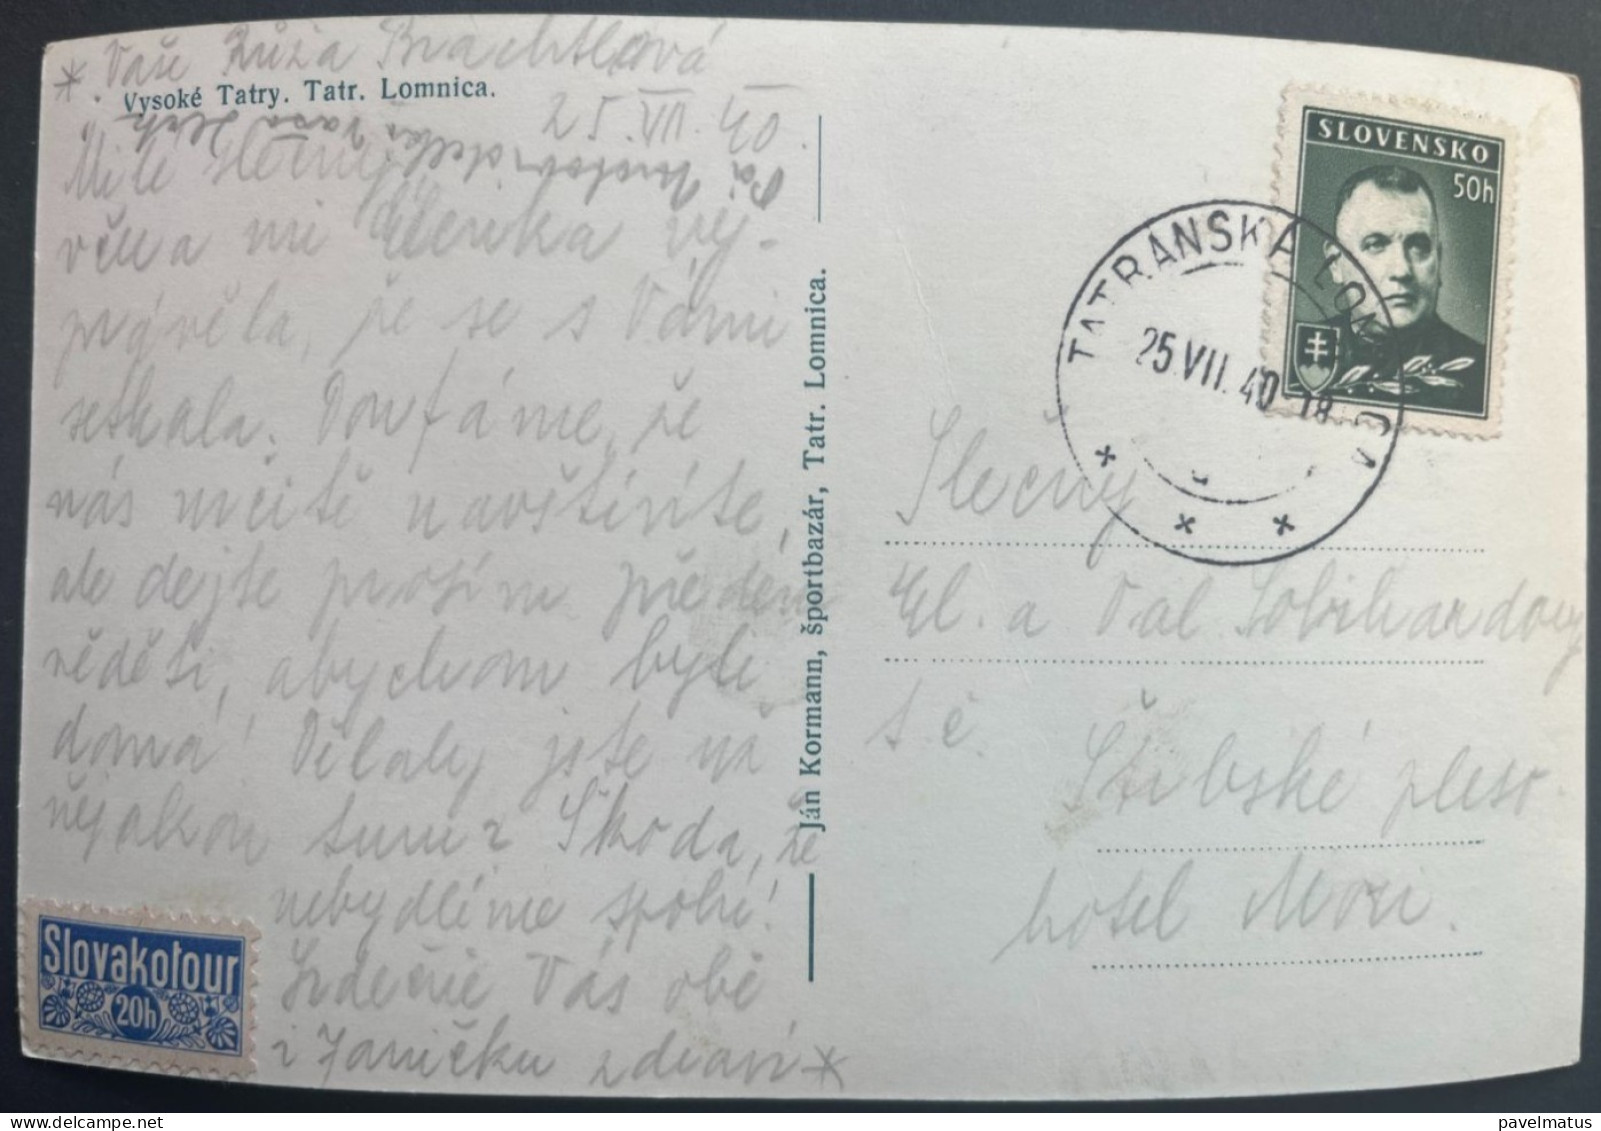 * Vaše Růža Brachtlová
Vysoké Tatry. Tatr. Lomnica.
25.VII.40.
Milé slečny,
včera mi Elenka vy-
právěla, že se s Vámi
setkala. Doufáme, že
nás určitě navštívíte,
ale dejte prosím předem
věděti, abychom byli
doma! Dělaly jste už
nějakou turu? Škoda, že
nebydlíme spolu!
Srdečně Vás obě
i Janičku zdraví *
Ján Kormann, športbazár, Tatr. Lomnica.
SLOVENSKO
50h
TATRANSKÁ LOMNICA
25.VII.40-18
Slečny
El. a Val.
t. č.
Štrbské pleso.
hotel Móri.
Slovakotour
20h
delcampe.net
pavelmatus